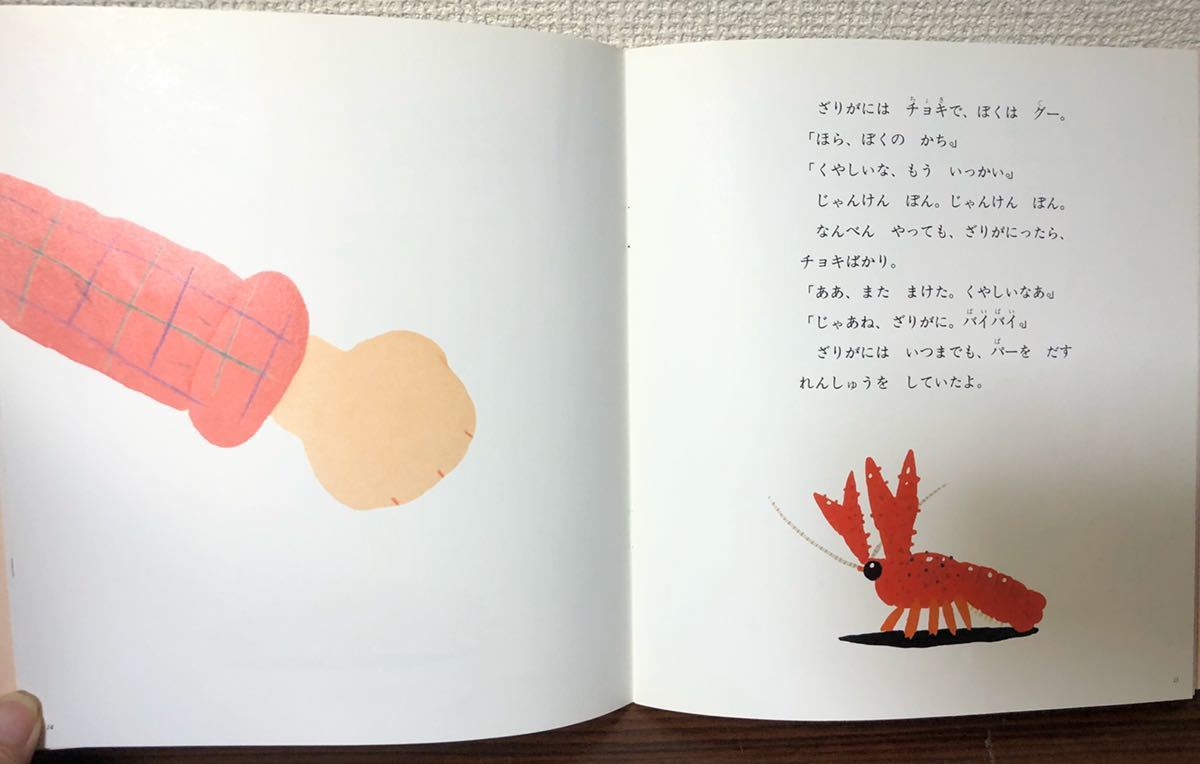 ざりがには　チョキで、ぼくは　グー。
「ほら、ぼくの　かち。」
「くやしいな、もう　いっかい。」
じゃんけん　ぽん。じゃんけん　ぽん。
なんべん　やっても、ざりがにったら、
チョキばかり。
「ああ、また　まけた。くやしいなあ。」
「じゃあね、ざりがに。バイバイ。」
ざりがには　いつまでも、パーを　だす
れんしゅうを　していたよ。